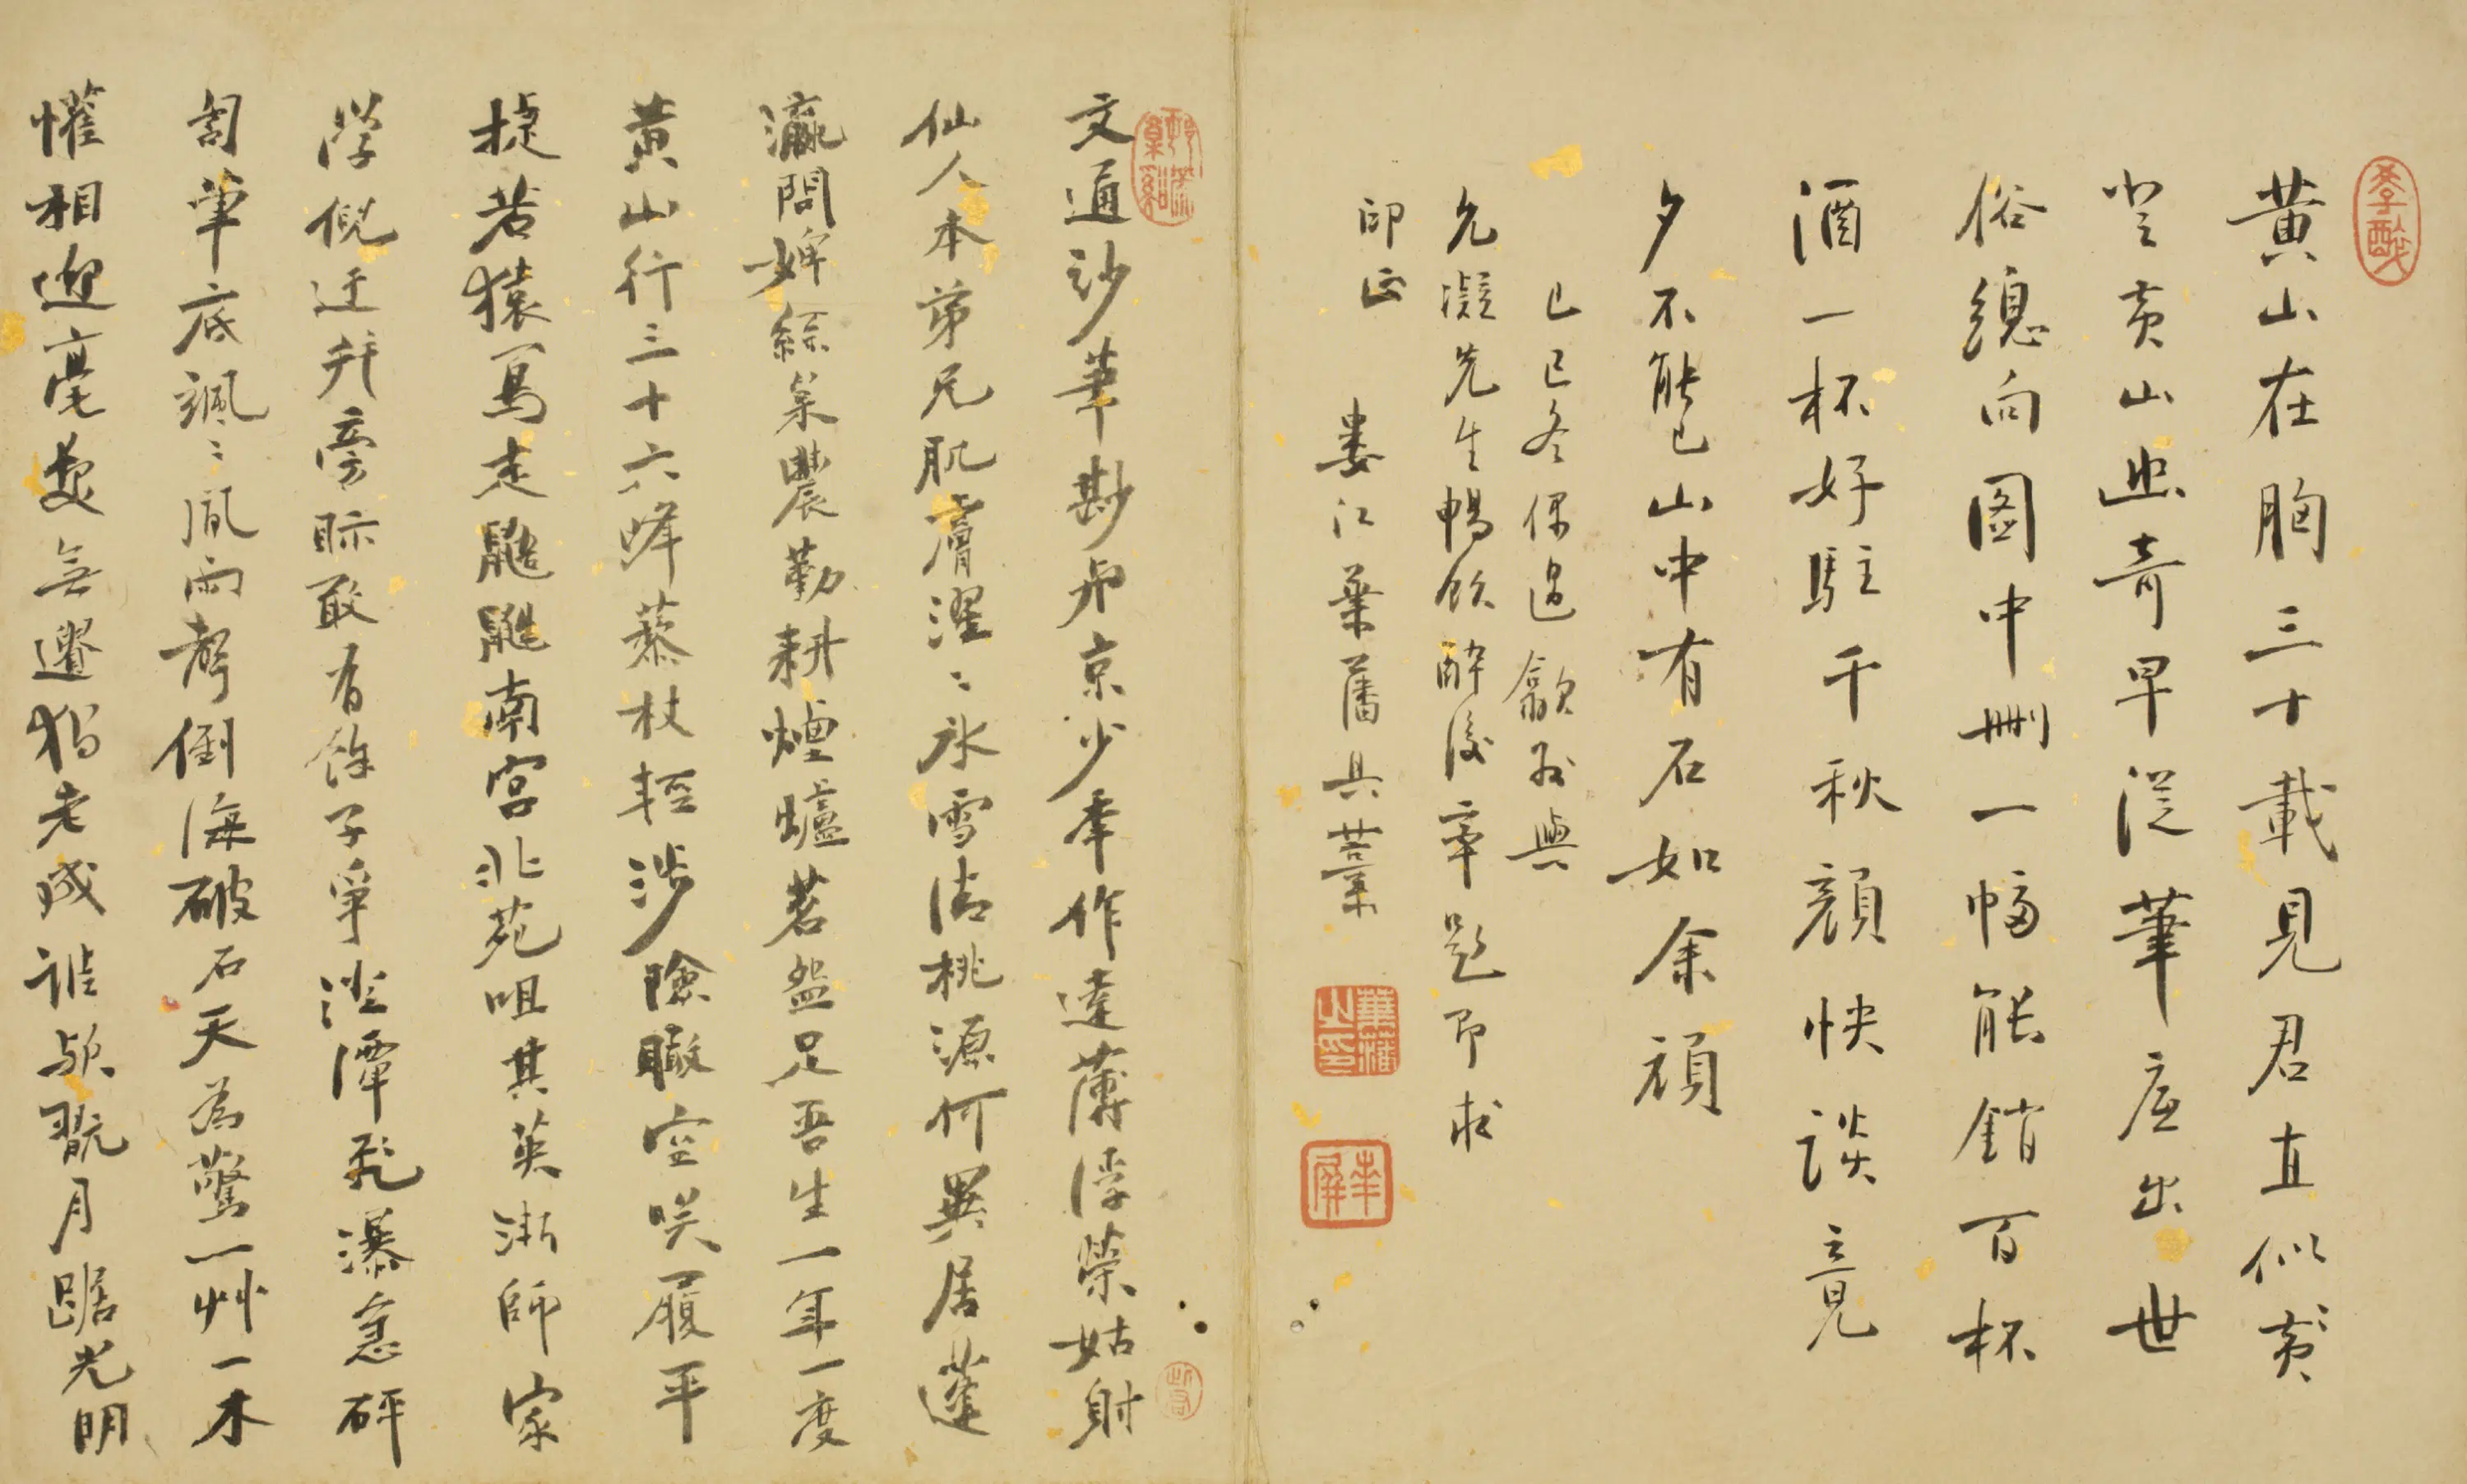 黃山在胸三十載見君直似黃
山登黃山幽奇早從筆底出世
俗總向圖中刪一幅能銷百杯
酒一杯好駐千秋顏快談竟
夕不能已山中有石如余頑
己巳冬偶過歙州與
允凝先生暢飲醉後率題即求
印正
婁江葉藩具藁
葉藩之印
文通紗筆夢弔京少年作達薄浮榮姑射
仙人本弟兄肌膚濯〻冰雪清桃源何異居蓬
瀛問婢綜枲農勤耕煙爐茗盌足吾生一年一度
黃山行三十六峰藜杖輕涉險瞰空笑履平
捷若猿猱走鼯南宮北苑咀其英浙師家
學倪迂并旁睞敢有餘子爭澄潭飛瀑急砰
訇筆底颯〻風雨聲倒海破石天為驚一艸一木
懽相迎毫髮無遺猶老成誰歟翫月踞光明